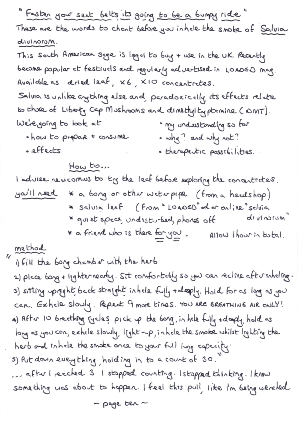 "Fasten your seat belts its going to be a bumpy ride"
These are the words to chant before you inhale the smoke of Salvia
divinorum.
This South American Sage is legal to buy + use in the UK. Recently
become popular at festivals and regularly advertised in LOADED mag.
Available as dried leaf, x6, x10 concentrates.
Salvia is unlike anything else and, paradoxically its effects relate
to those of Liberty Cap Mushrooms and dimethyltryptamine (DMT).
We're going to look at • my understanding so far
• how to prepare + consume • why? and why not?
• effects • therapeutic possibilities.
How to...
I advise newcomers to try the leaf before exploring the concentrates.
you'll need * a bong or other waterpipe (from a headshop)
* salvia leaf (from "LOADED" ad or online "salvia
* quiet space, undisturbed, phones off divinorum"
* a friend who is there for you. Allow 1 hour in total.
method
"1) fill the bong chamber with the herb
2) place bong + lighter nearby. Sit comfortably so you can recline after inhaling.
3) sitting upright back straight inhale fully + deeply. Hold for as long as you
can. Exhale slowly. Repeat 9 more times. YOU ARE BREATHING AIR ONLY!
4) After 10 breathing cycles pick up the bong, inhale fully + deeply, hold as
long as you can, exhale slowly, light-up, inhale the smoke whilst lighting the
herb and inhale the smoke once to your full lung capacity.
5) Put down everything, holding in to a count of 30."
... after I reached 3 I stopped counting. I stopped thinking. I knew
something was about to happen. I feel this pull, like I'm being wrenched
- page ten -